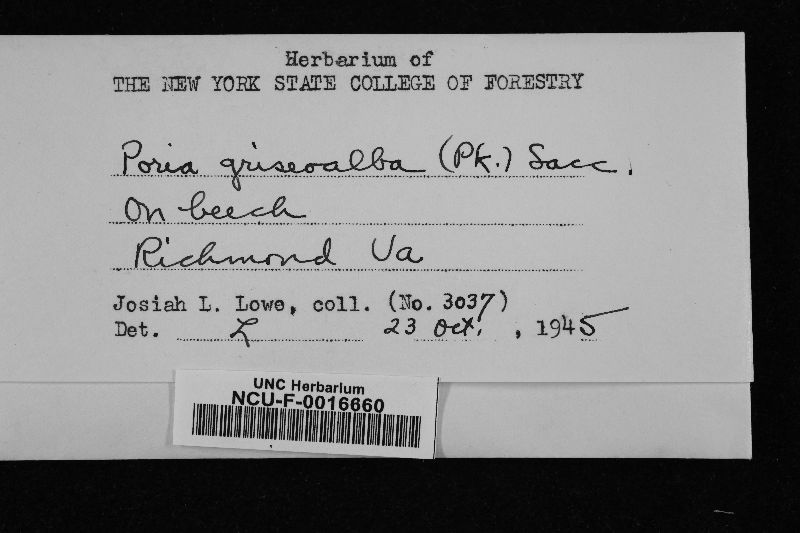 Herbarium of
THE NEW YORK STATE COLLEGE OF FORESTRY
Poria griseoalba (Pk.) Sacc.
On beech
Richmond Va
Josiah L. Lowe, coll. (No. 3037)
Det. L 23 Oct. , 1945
UNC Herbarium
NCU-F-0016660